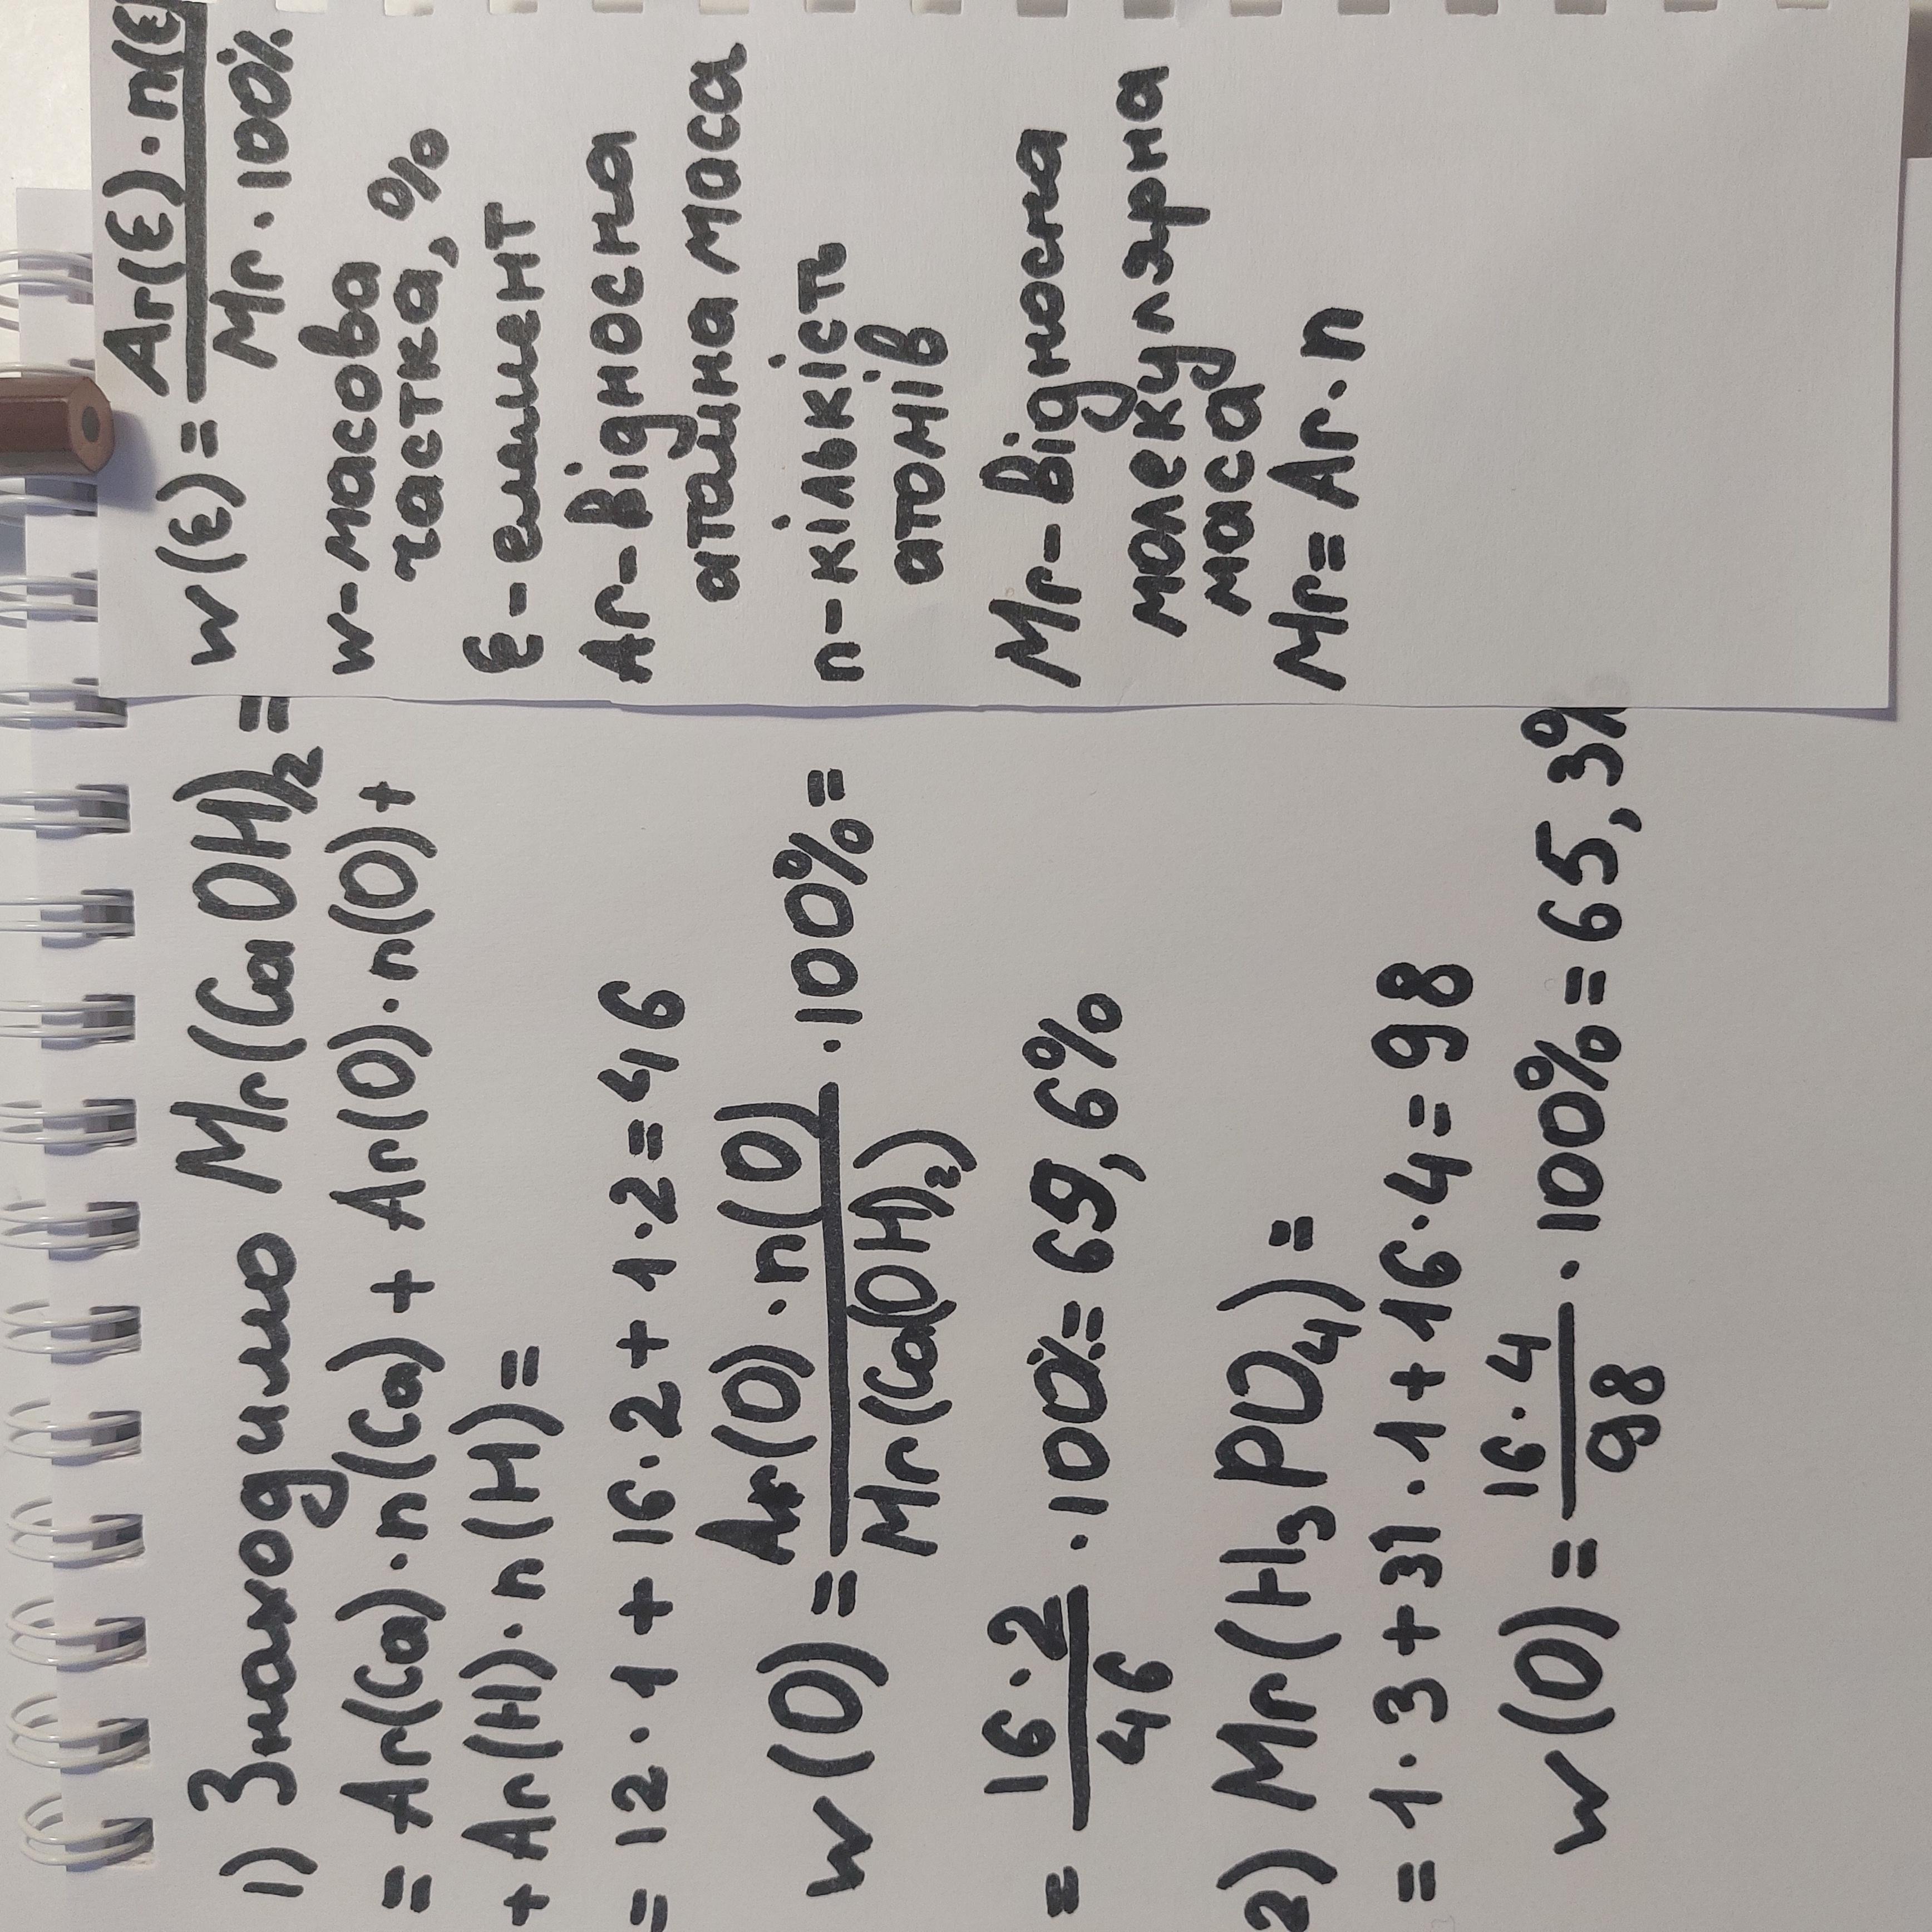 1) Знаходимо Mr(Ca OH)₂ =
= Ar(Ca)·n(Ca) + Ar(O)·n(O)+
+ Ar(H)·n(H)=
= 12·1 + 16·2 + 1·2=46
w(O) = Ar(O)·n(O) / Mr(Ca(OH)₂) ·100%=
= 16·2 / 46 ·100%= 69,6%
2) Mr(H₃PO₄) =
= 1·3+31·1+16·4=98
w(O) = 16·4 / 98 ·100%=65,3%
w(E)= Ar(E)·n(E / Mr·100%
w-масова
частка, %
E-елемент
Ar-відносна
атомна маса
n-кількість
атомів
Mr-відносна
молекулярна
маса
Mr= Ar·n